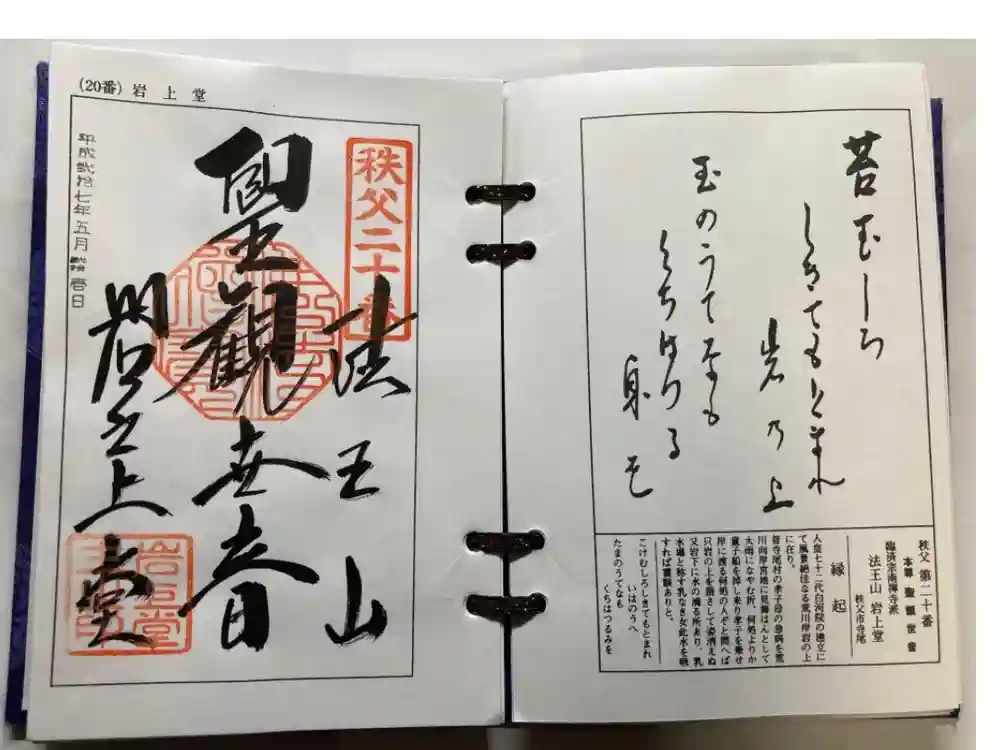 (20番) 岩上堂
秩父二十番
法王山
聖観世音
岩之上堂
平成弐拾七年五月弐拾壱日
苔むしろ
しきてもとまれ
岩乃上
玉のうてなも
くちはつる
身を
秩父 第二十番
本尊 聖観世音
臨済宗南禅寺派
法王山 岩上堂
秩父市寺尾
縁起
人皇七十二代白河院の建立に
て風景絶佳なる荒川岸岩の上
に在り。
昔寺尾村の孝子母の急病を荒
川向岸宮地に見舞はんとして
大雨になやむ折、何処よりか
童子船を掉し来り孝子を乗せ
岸に渡る何処の人ぞと問へば
只岩の上を指さして姿消えぬ
又岩下に水の涌る所あり、乳
水場と称す乳なき女此水を吸
すれば霊験ありと。
こけむしろしきてもとまれ
いはのうへ
たまのうてなも
くちはつるみを